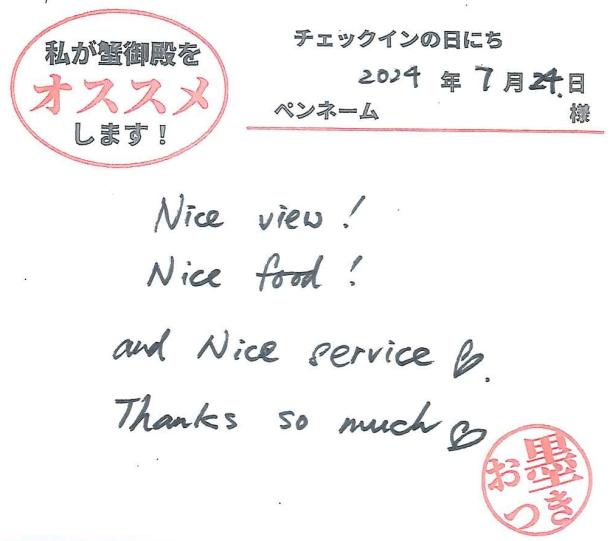 私が蟹御殿を
オススメ
します！
チェックインの日にち
2024年7月24.日
ペンネーム 様
Nice view!
Nice food!
and Nice service ♡.
Thanks so much ♡
お墨
つき